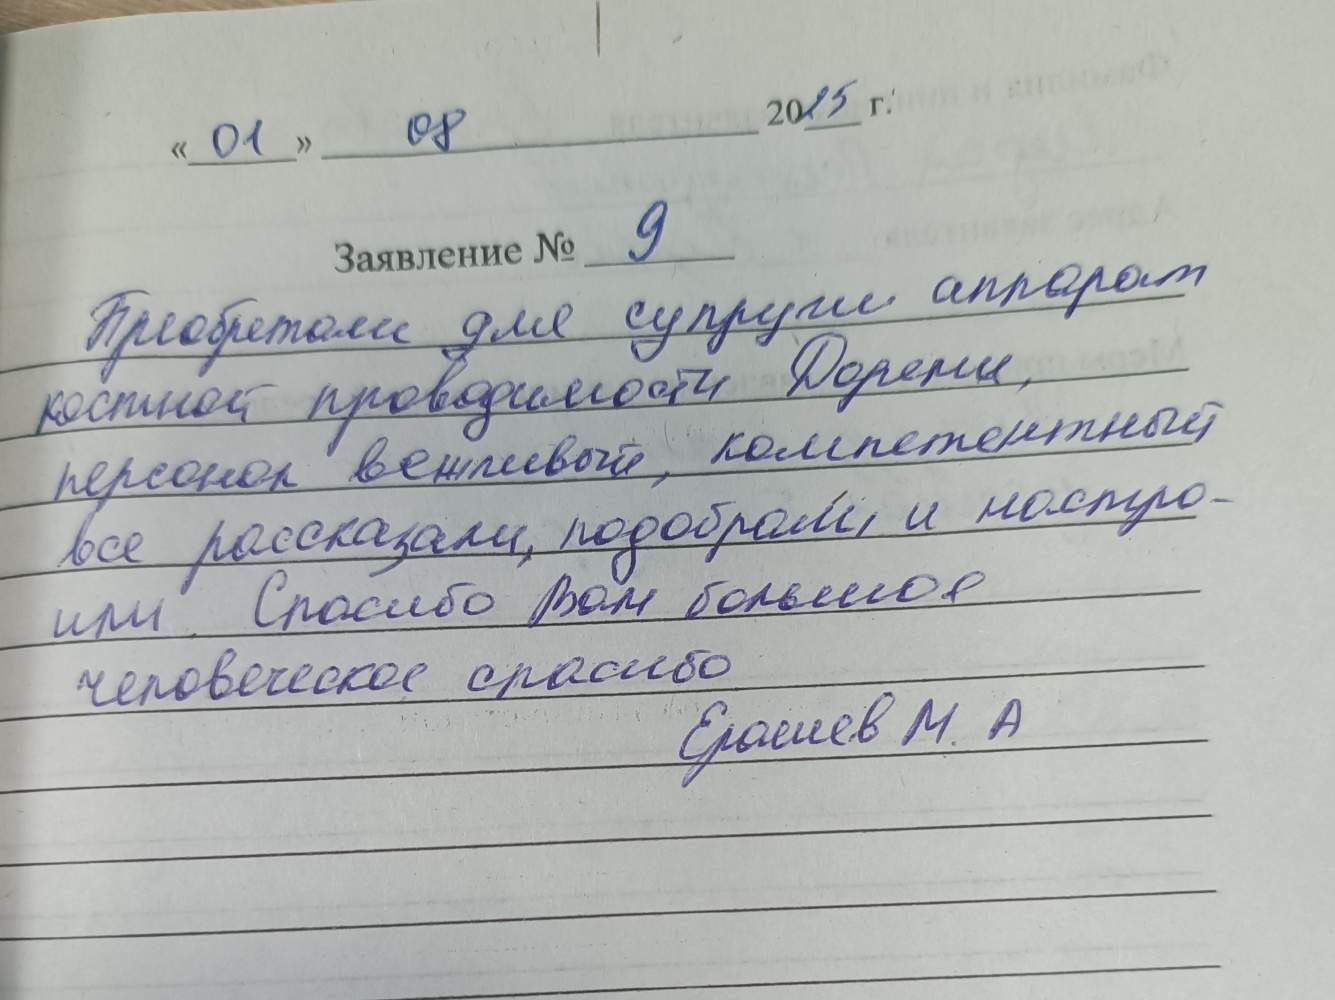 «01» 08 2025 г.
Заявление № 9
Приобретали для супруги аппарат
костной проводимости Дореми,
персонал вежливый, компетентный
все рассказали, подобрали и настро-
или. Спасибо Вам большое
человеческое спасибо
Ерашев М. А